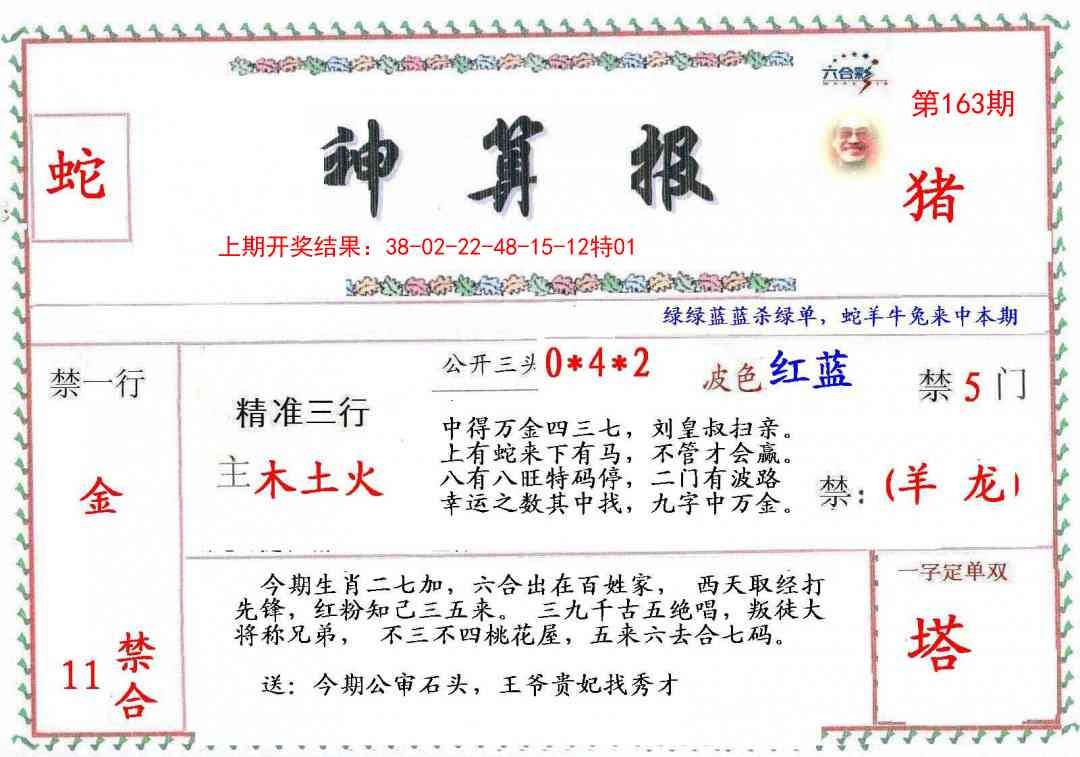 六合彩
第163期
蛇
神算报
猪
上期开奖结果：38-02-22-48-15-12特01
绿绿蓝蓝杀绿单，蛇羊牛兔来中本期
禁一行
金
11
禁合
精准三行
主木土火
公开三头0*4*2
波色红蓝
禁5门
中得万金四三七，刘皇叔扫亲。
上有蛇来下有马，不管才会赢。
八有八旺特码停，二门有波路
幸运之数其中找，九字中万金。
禁：(羊 龙)
今期生肖二七加，六合出在百姓家， 西天取经打
先锋，红粉知己三五来。 三九千古五绝唱，叛徒大
将称兄弟， 不三不四桃花屋，五来六去合七码。
送：今期公审石头，王爷贵妃找秀才
一字定单双
塔